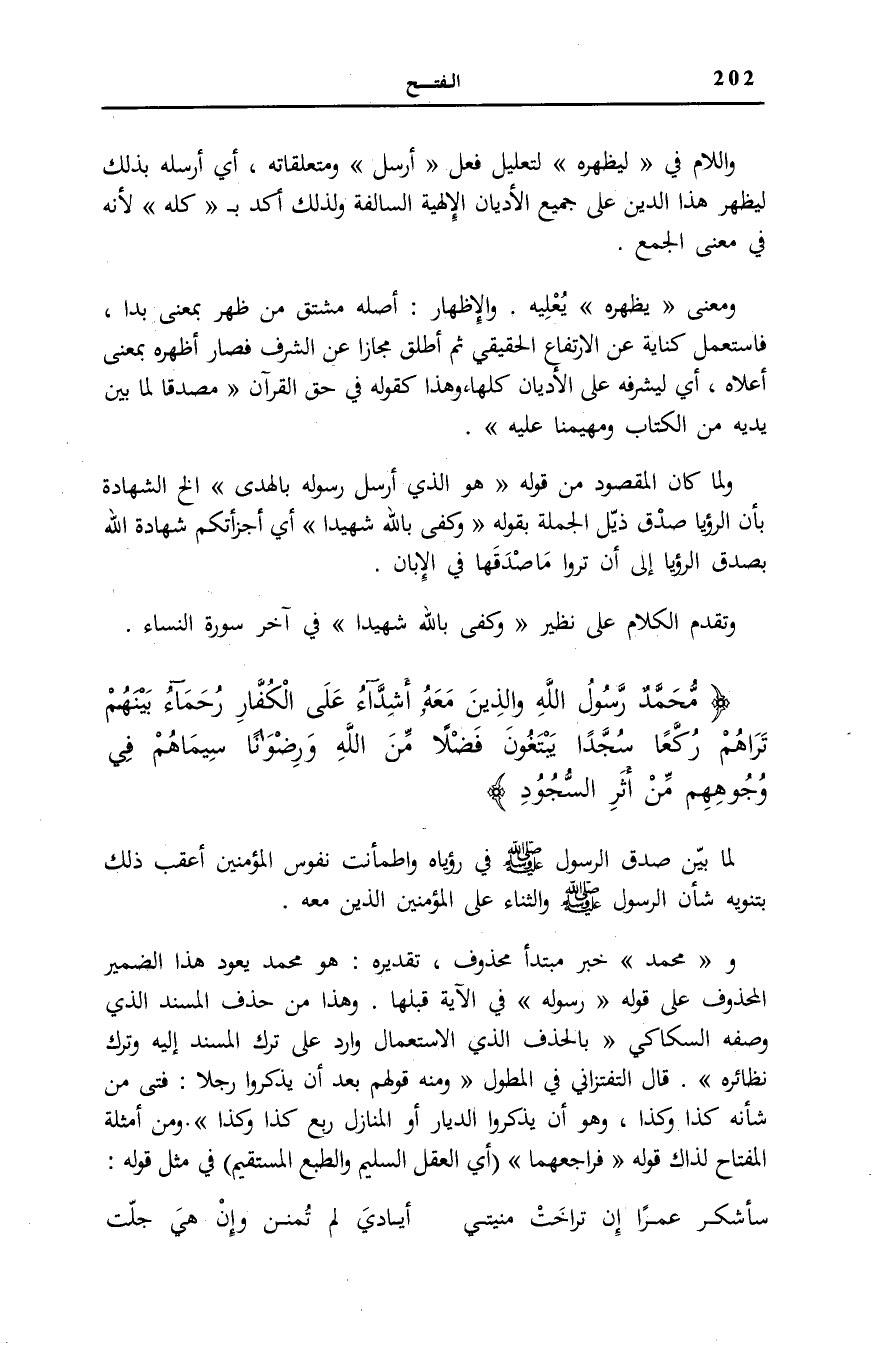 202
الفتـــح
واللام في « ليظهره » لتعليل فعل « أرسل » ومتعلقاته ، أي أرسله بذلك
ليظهر هذا الدين على جميع الأديان الإلهية السالفة ولذلك أكد بـ « كله » لأنه
في معنى الجمع .
ومعنى « يظهره » يُعْلِيه . والإظهار : أصله مشتق من ظهر بمعنى بدا ،
فاستعمل كناية عن الارتفاع الحقيقي ثم أطلق مجازا عن الشرف فصار أظهره بمعنى
أعلاه ، أي ليشرفه على الأديان كلها،وهذا كقوله في حق القرآن « مصدقا لما بين
يديه من الكتاب ومهيمنا عليه » .
ولما كان المقصود من قوله « هو الذي أرسل رسوله بالهدى » الخ الشهادة
بأن الرؤيا صدْق ذيّل الجملة بقوله « وكفى بالله شهيدا » أي أجزأتكم شهادة الله
بصدق الرؤيا إلى أن تروا مَاصْدَقَها في الإبان .
وتقدم الكلام على نظير « وكفى بالله شهيدا » في آخر سورة النساء .
﴿ مُّحَمَّدٌ رَّسُولُ اللَّهِ والذِينَ مَعَهُۥ أَشِدَّآءُ عَلَى الْكُفَّارِ رُحَمَآءُ بَيْنَهُمْ
تَرَاهُمْ رُكَّعًا سُجَّدًا يَبْتَغُونَ فَضْلًا مِّنَ اللَّهِ وَرِضْوَٰنًا سِيمَاهُمْ فِي
وُجُوهِهِم مِّنْ أَثَرِ السُّجُودِ ﴾
لما بيّن صدق الرسول ﷺ في رؤياه واطمأنت نفوس المؤمنين أعقب ذلك
بتنويه شأن الرسول ﷺ والثناء على المؤمنين الذين معه .
و « محمد » خبر مبتدأ محذوف ، تقديره : هو محمد يعود هذا الضمير
المحذوف على قوله « رسوله » في الآية قبلها . وهذا من حذف المسند الذي
وصفه السكاكي « بالحذف الذي الاستعمال وارد على ترك المسند إليه وترك
نظائره » . قال التفتزاني في المطول « ومنه قولهم بعد أن يذكروا رجلا : فتى من
شأنه كذا وكذا ، وهو أن يذكروا الديار أو المنازل ربع كذا وكذا ».ومن أمثلة
المفتاح لذاك قوله « فراجعهما » (أي العقل السليم والطبع المستقيم) في مثل قوله :
سأشكـر عمـرًا إن تراخَتْ منيتـي أيـاديَ لم تُمنـن وإنْ هيَ جلّت